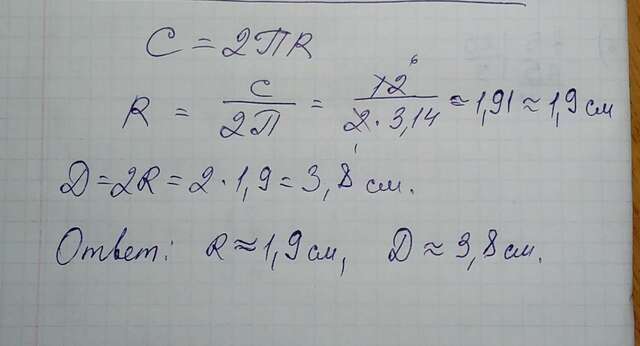 C = 2ПR
R = C/2П = 12⁶/2₁·3,14 ≈ 1,91 ≈ 1,9 см
D = 2R = 2·1,9 = 3,8 см.
Ответ: R ≈ 1,9 см, D ≈ 3,8 см.